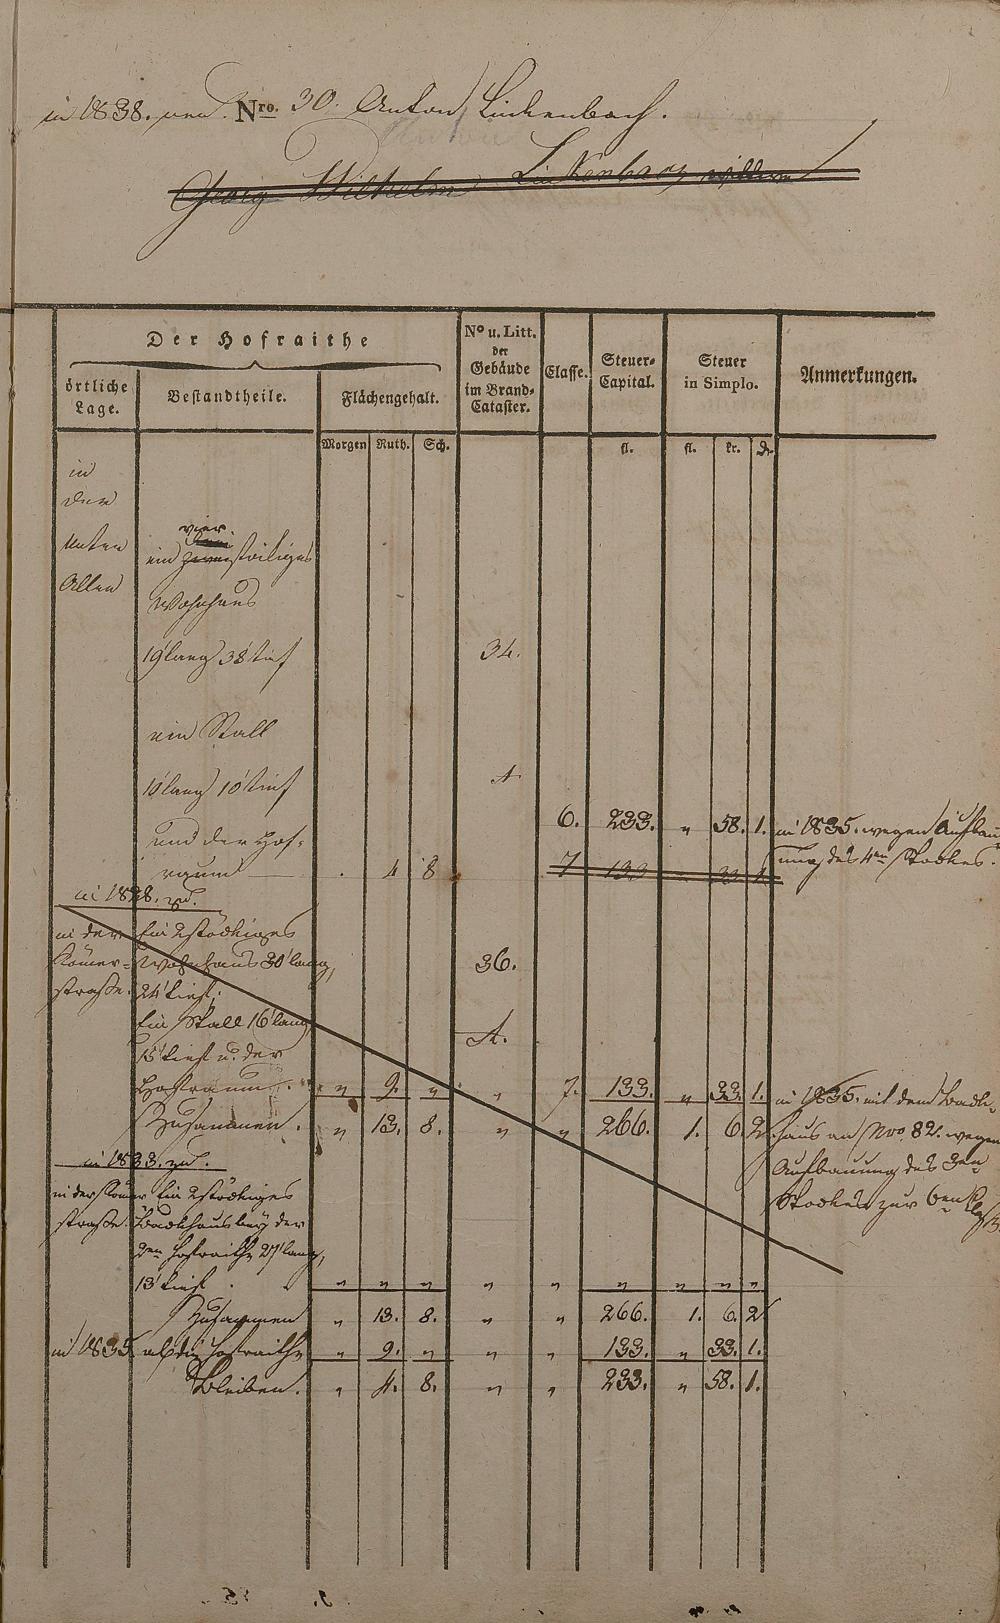 in 1838. von Nro. 30. Anton Linkenbach.
Georg Wilhelm Linkenbach
Der Hofraithe
No u. Litt. der Gebäude im Brand-Cataster.
Classe.
Steuer-Capital.
Steuer in Simplo.
Anmerkungen.
örtliche Lage.
Bestandtheile.
Flächengehalt.
Morgen Ruth. Sch.
fl. fl. kr. d.
in
der
unten vier
ein zwei stöckiges
Allen
Wohnhaus
19' lang 38' tief 34.
ein Stall
10' lang 10' tief A
6. 233. " 58. 1. in 1835. wegen Aufbau-
und der Hof-
ung des 4ten Stockes.
raum . 4 8 7 133 " 33 1.
in 1828. zu.
in der Ein 2stöckiges
Römer- Wohnhaus 30' lang, 36.
straße. 24' tief;
Ein Stall 16' lang A.
15' tief u. der
Hofraum. " 9. " " 7. 133. " 33. 1. in 1835. mit dem Back-
Zusammen. " 13. 8. " " 266. 1. 6. 2. haus ad Nro. 82. wegen
Aufbauung des 3ten
in 1833. zu.
in der Römer Ein 2stöckiges Stockes zur 6ten Classe
straße. Backhaus bey der
2ten Hofraithe 27' lang,
13' tief. " " " " " " " " "
Zusammen " 13. 8. " " 266. 1. 6. 2
in 1835. ab die Hofraithe " 9. " " " 133. " 33. 1.
Bleiben. " 4. 8. " " 233. " 58. 1.